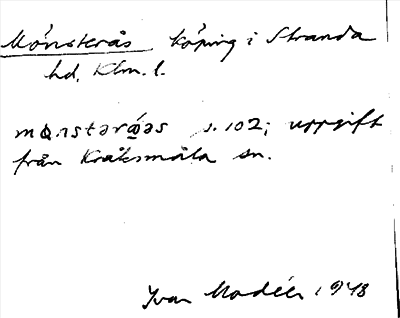 Mönsterås köping i Stranda
hd, Klm. l.
s. 102; uppgift
från Kråksmåla sn.
Ivar Modéer 1948